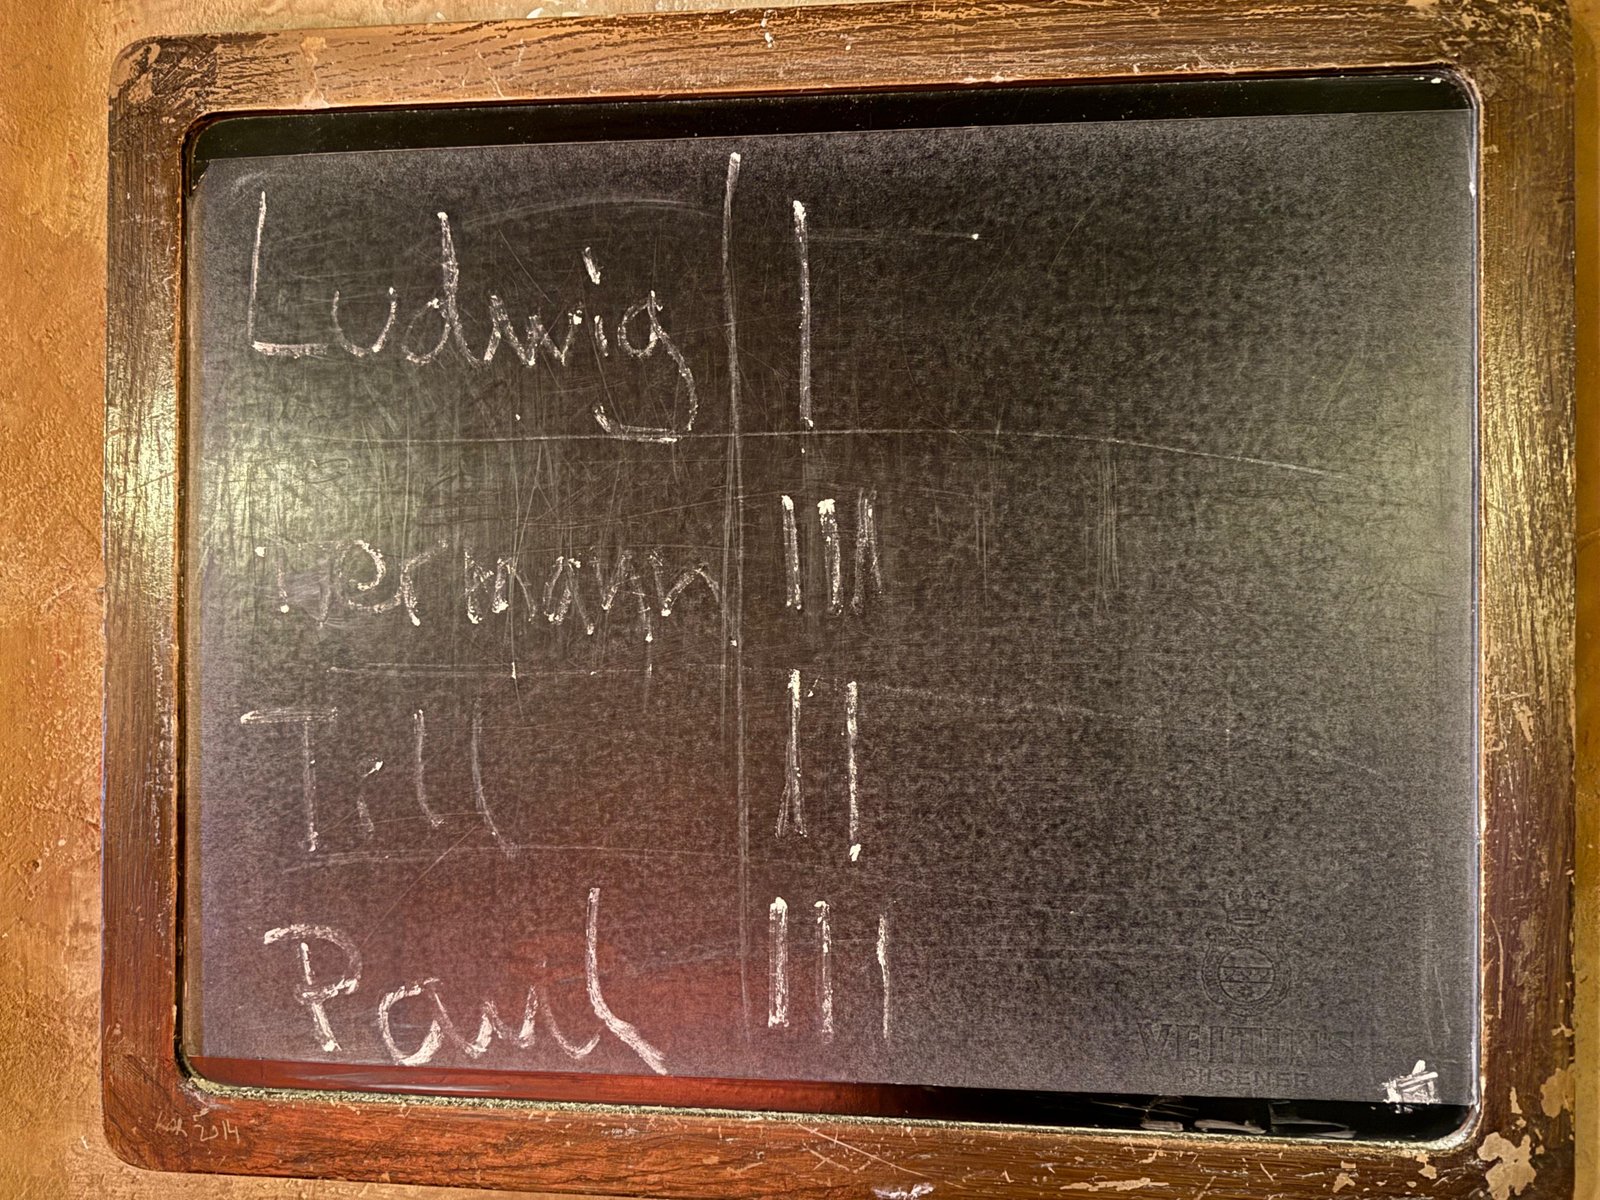 Ludwig I
Hermann III
Till II
Paul III
VELTINS
PILSENER
2014